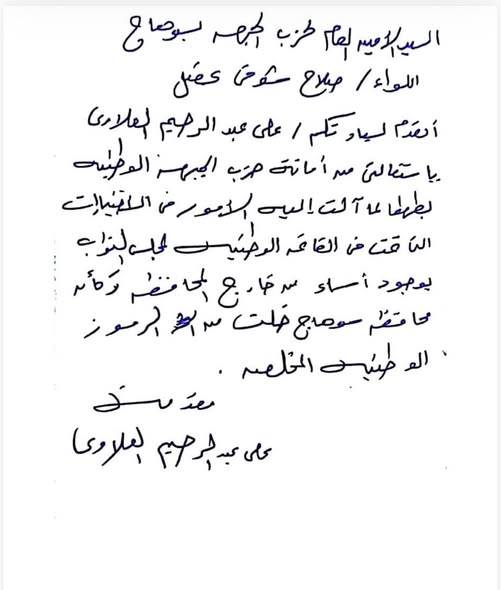 السيد الأمين العام لحزب الجبهه بسوهاج
اللواء / صلاح شوقى عقيل
أتقدم لسيادتكم / على عبد الرحيم العلاوى
باستقالتى من أمانة حزب الجبهة الوطنيه
بطهطا لما آلت إليه الأمور فى الاختيارات
التى تمت فى القائمه الوطنيه لمجلس النواب
بوجود أسماء من خارج المحافظه وكأن
محافظة سوهاج خلت من الرموز
الوطنيه المخلصه .
مقدمه
على عبد الرحيم العلاوى